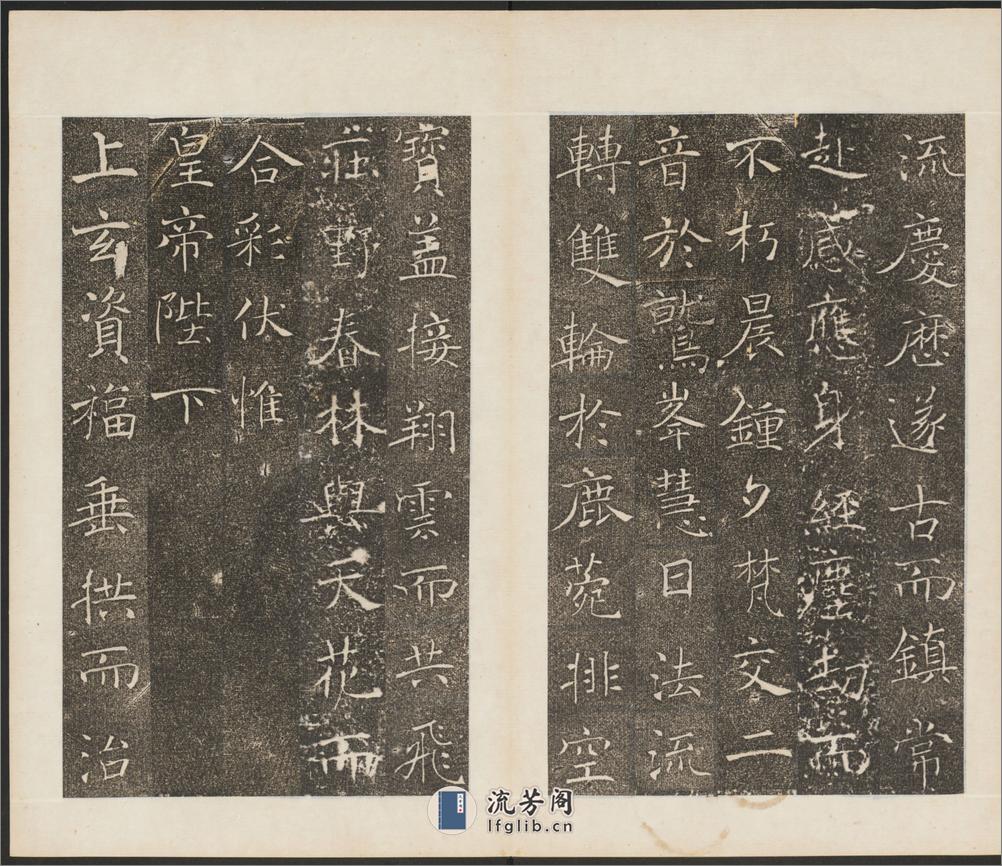 流慶歷遂古而鎮常
赴感應身經塵劫而
不朽晨鍾夕梵交二
音於鷲峯慧日法流
轉雙輪於鹿菀排空
寶盖接翔雲而共飛
莊野春林與天花而
合彩伏惟
皇帝陛下
上玄資福垂拱而治
流芳阁
lfglib.cn